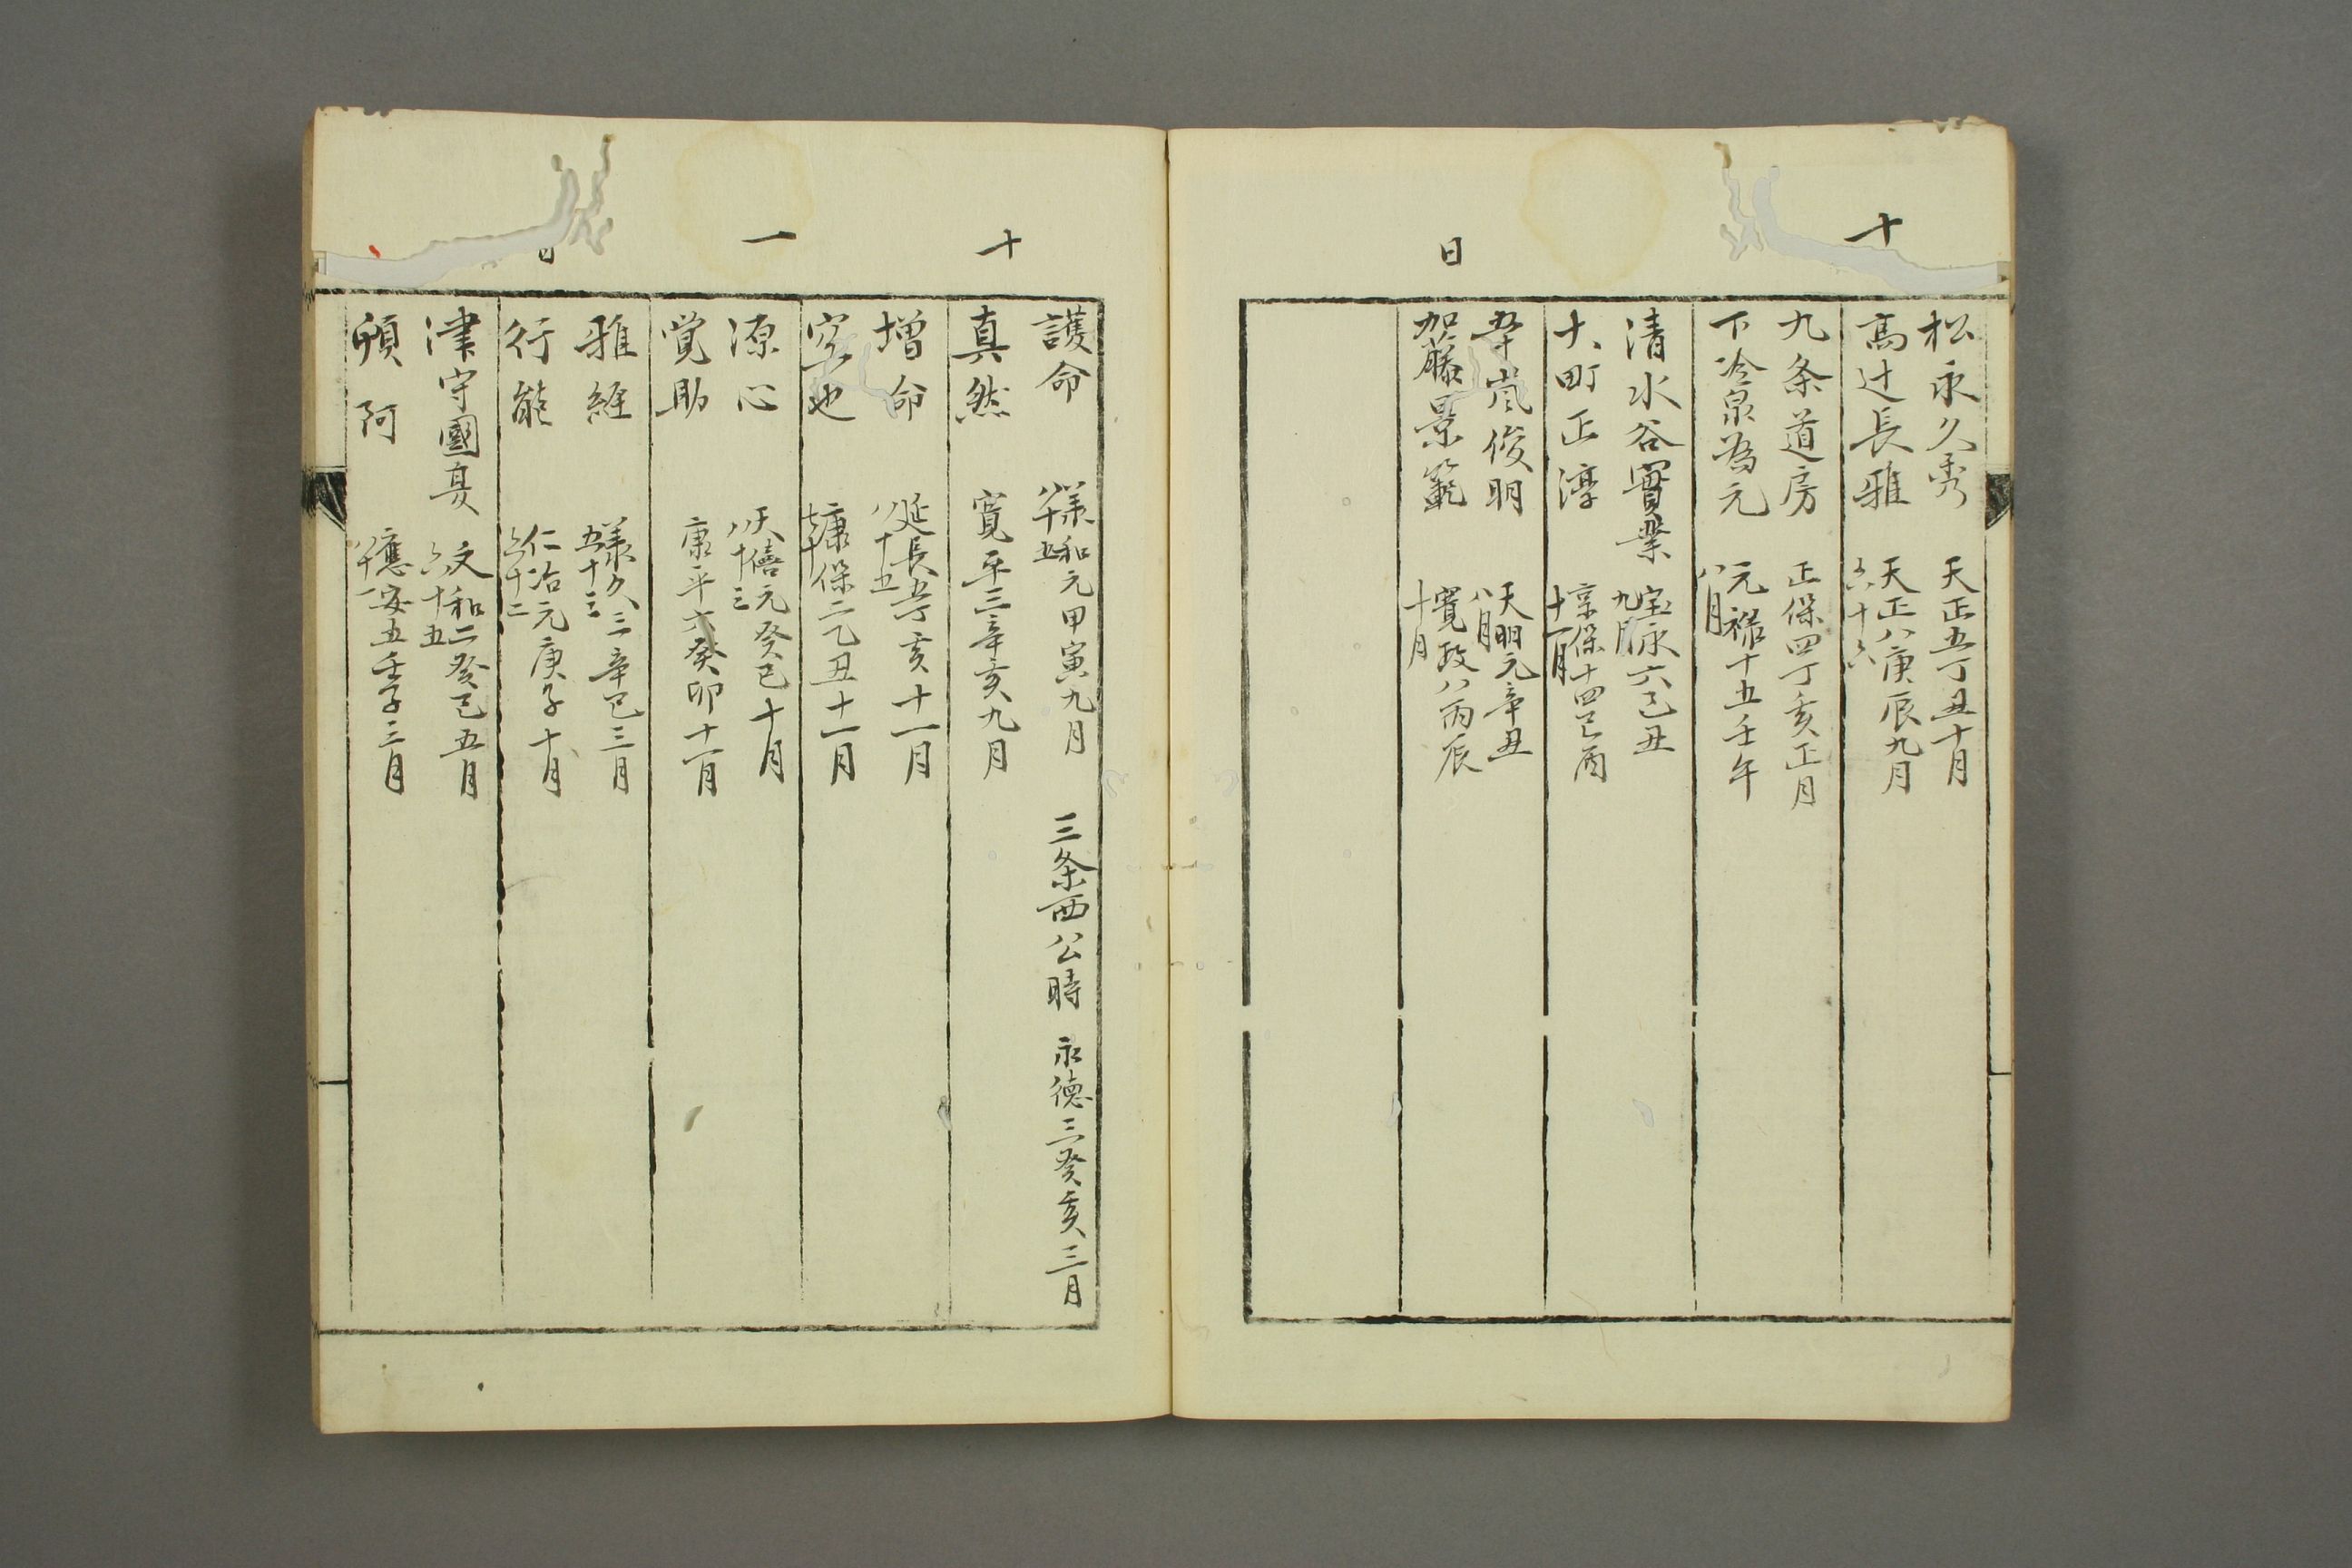 十
日
松永久秀 天正五丁丑十月
高辻長雅 天正八庚辰九月 六十六
九条道房 正保四丁亥正月
下冷泉為元 元禄十五壬午八月
清水谷實業 宝永六己丑九月
大町正淳 享保十四己酉十一月
五十嵐俊明 天明元辛丑八月
加藤景範 寛政八丙辰十月
十
一
日
護命 承和元甲寅九月 八十五 三条西公時 永徳三癸亥三月
真然 寛平三辛亥九月
増命 延長五丁亥十一月 八十五
空也 康保二乙丑十一月 七十
源心 天喜元癸巳十月 八十三
覚助 康平六癸卯十一月
雅経 承久三辛巳三月 五十三
行能 仁治元庚子十月 六十二
津守國夏 文和二癸巳五月 六十五
頓阿 應安五壬子三月 八十一